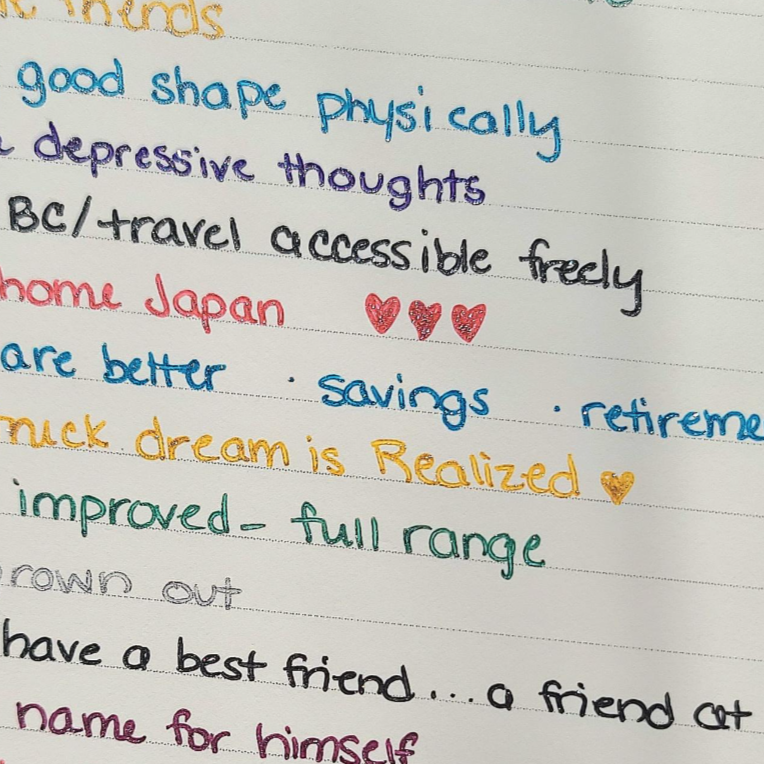 friends
good shape physically
depressive thoughts
BC/travel accessible freely
home Japan
are better · savings · retireme
dream is Realized
improved- full range
rown out
have a best friend...a friend at
name for himself